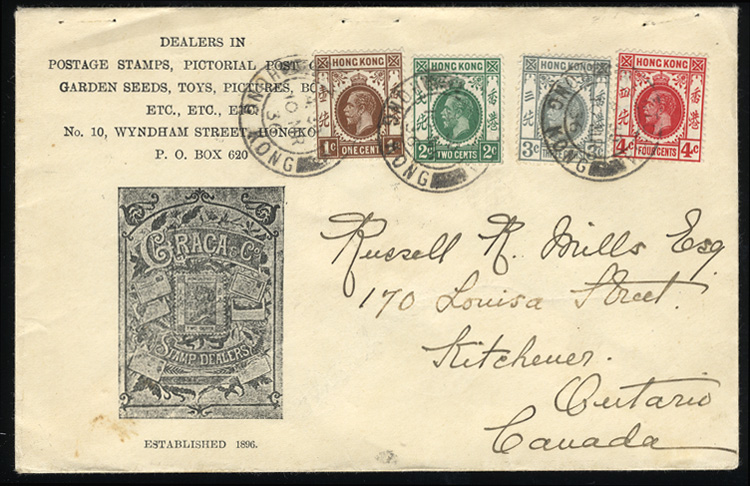 DEALERS IN
POSTAGE STAMPS, PICTORIAL POST
GARDEN SEEDS, TOYS, PICTURES,
ETC., ETC.,
No. 10, WYNDHAM STREET,
P. O. BOX 620
HONG KONG
香港
壹仙
1c ONE CENT
HONG KONG
香港
2c TWO CENTS 2c
HONG KONG
香港
3c
HONG KONG
香港
四仙
4c FOUR CENTS 4c
HONG KONG
10 MR
36
HONG KONG
36
HONG KONG
36
GRACA & Co
STAMP DEALERS
ESTABLISHED 1896.
Russell R. Mills Esq
170 Louisa Street.
Kitchener.
Ontario
Canada